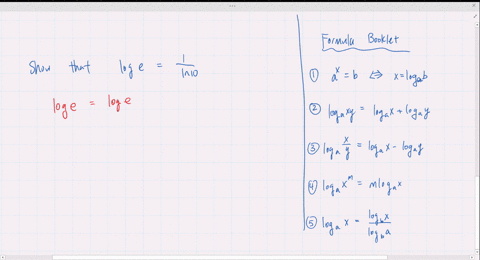 Show that log e = 1/ln 10
log e = log e
Formula Booklet
① aˣ = b ⇔ x = logₐb
② logₐxy = logₐx + logₐy
③ logₐ x/y = logₐx - logₐy
④ logₐxᵐ = m logₐx
⑤ logₐx = log_b x / log_b a